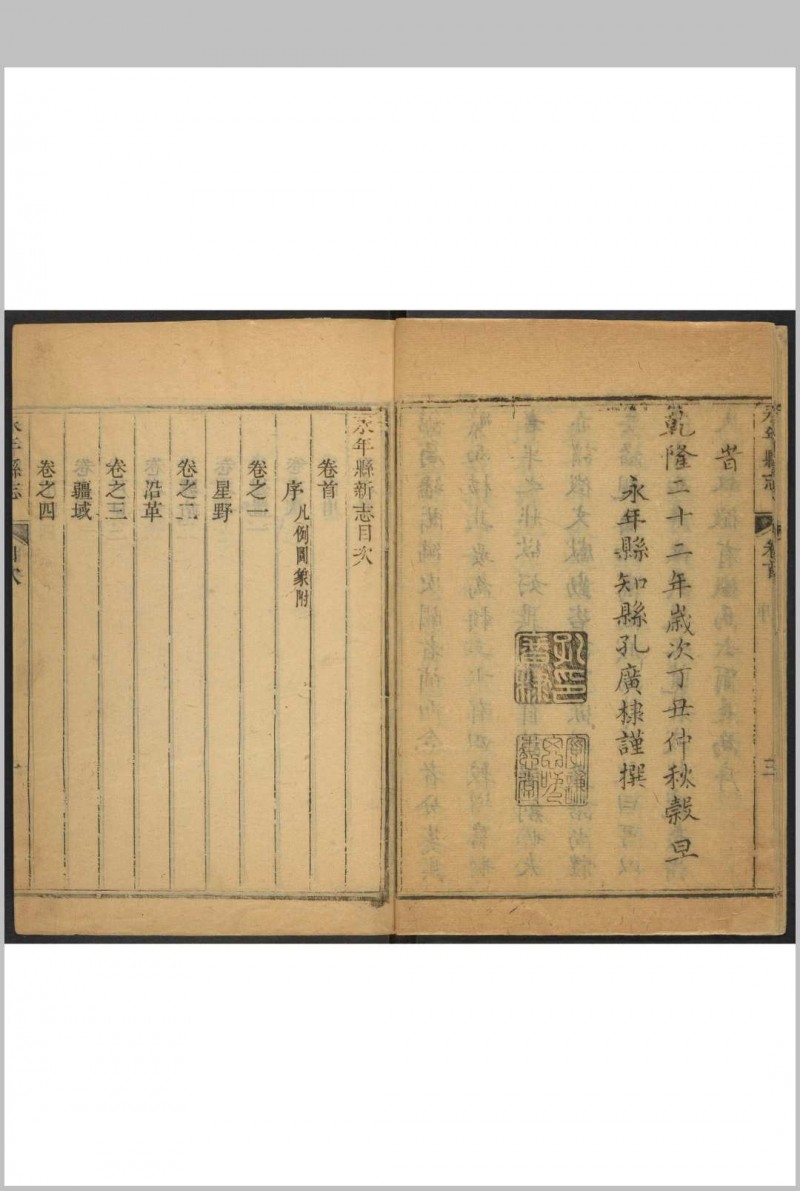 永年縣志
卷首
三
昔
乾隆二十二年歲次丁丑仲秋穀旦
永年縣知縣孔廣棣謹撰
永年縣新志目次
卷首
序凡例圖象附
卷之一
星野
卷之二
沿革
卷之三
疆域
卷之四
永年縣志
目次
一